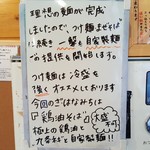 理想の麺が完成
しましたので、つけ麺まぜそば
に続き一撃も自家製麺
の提供を開始します。
つけ麺は冷盛を
強くオススメしております
今回のまぜはなからは
「鶏油そば」大盛
極上の鶏油と
九条ねぎと自家製麺!!